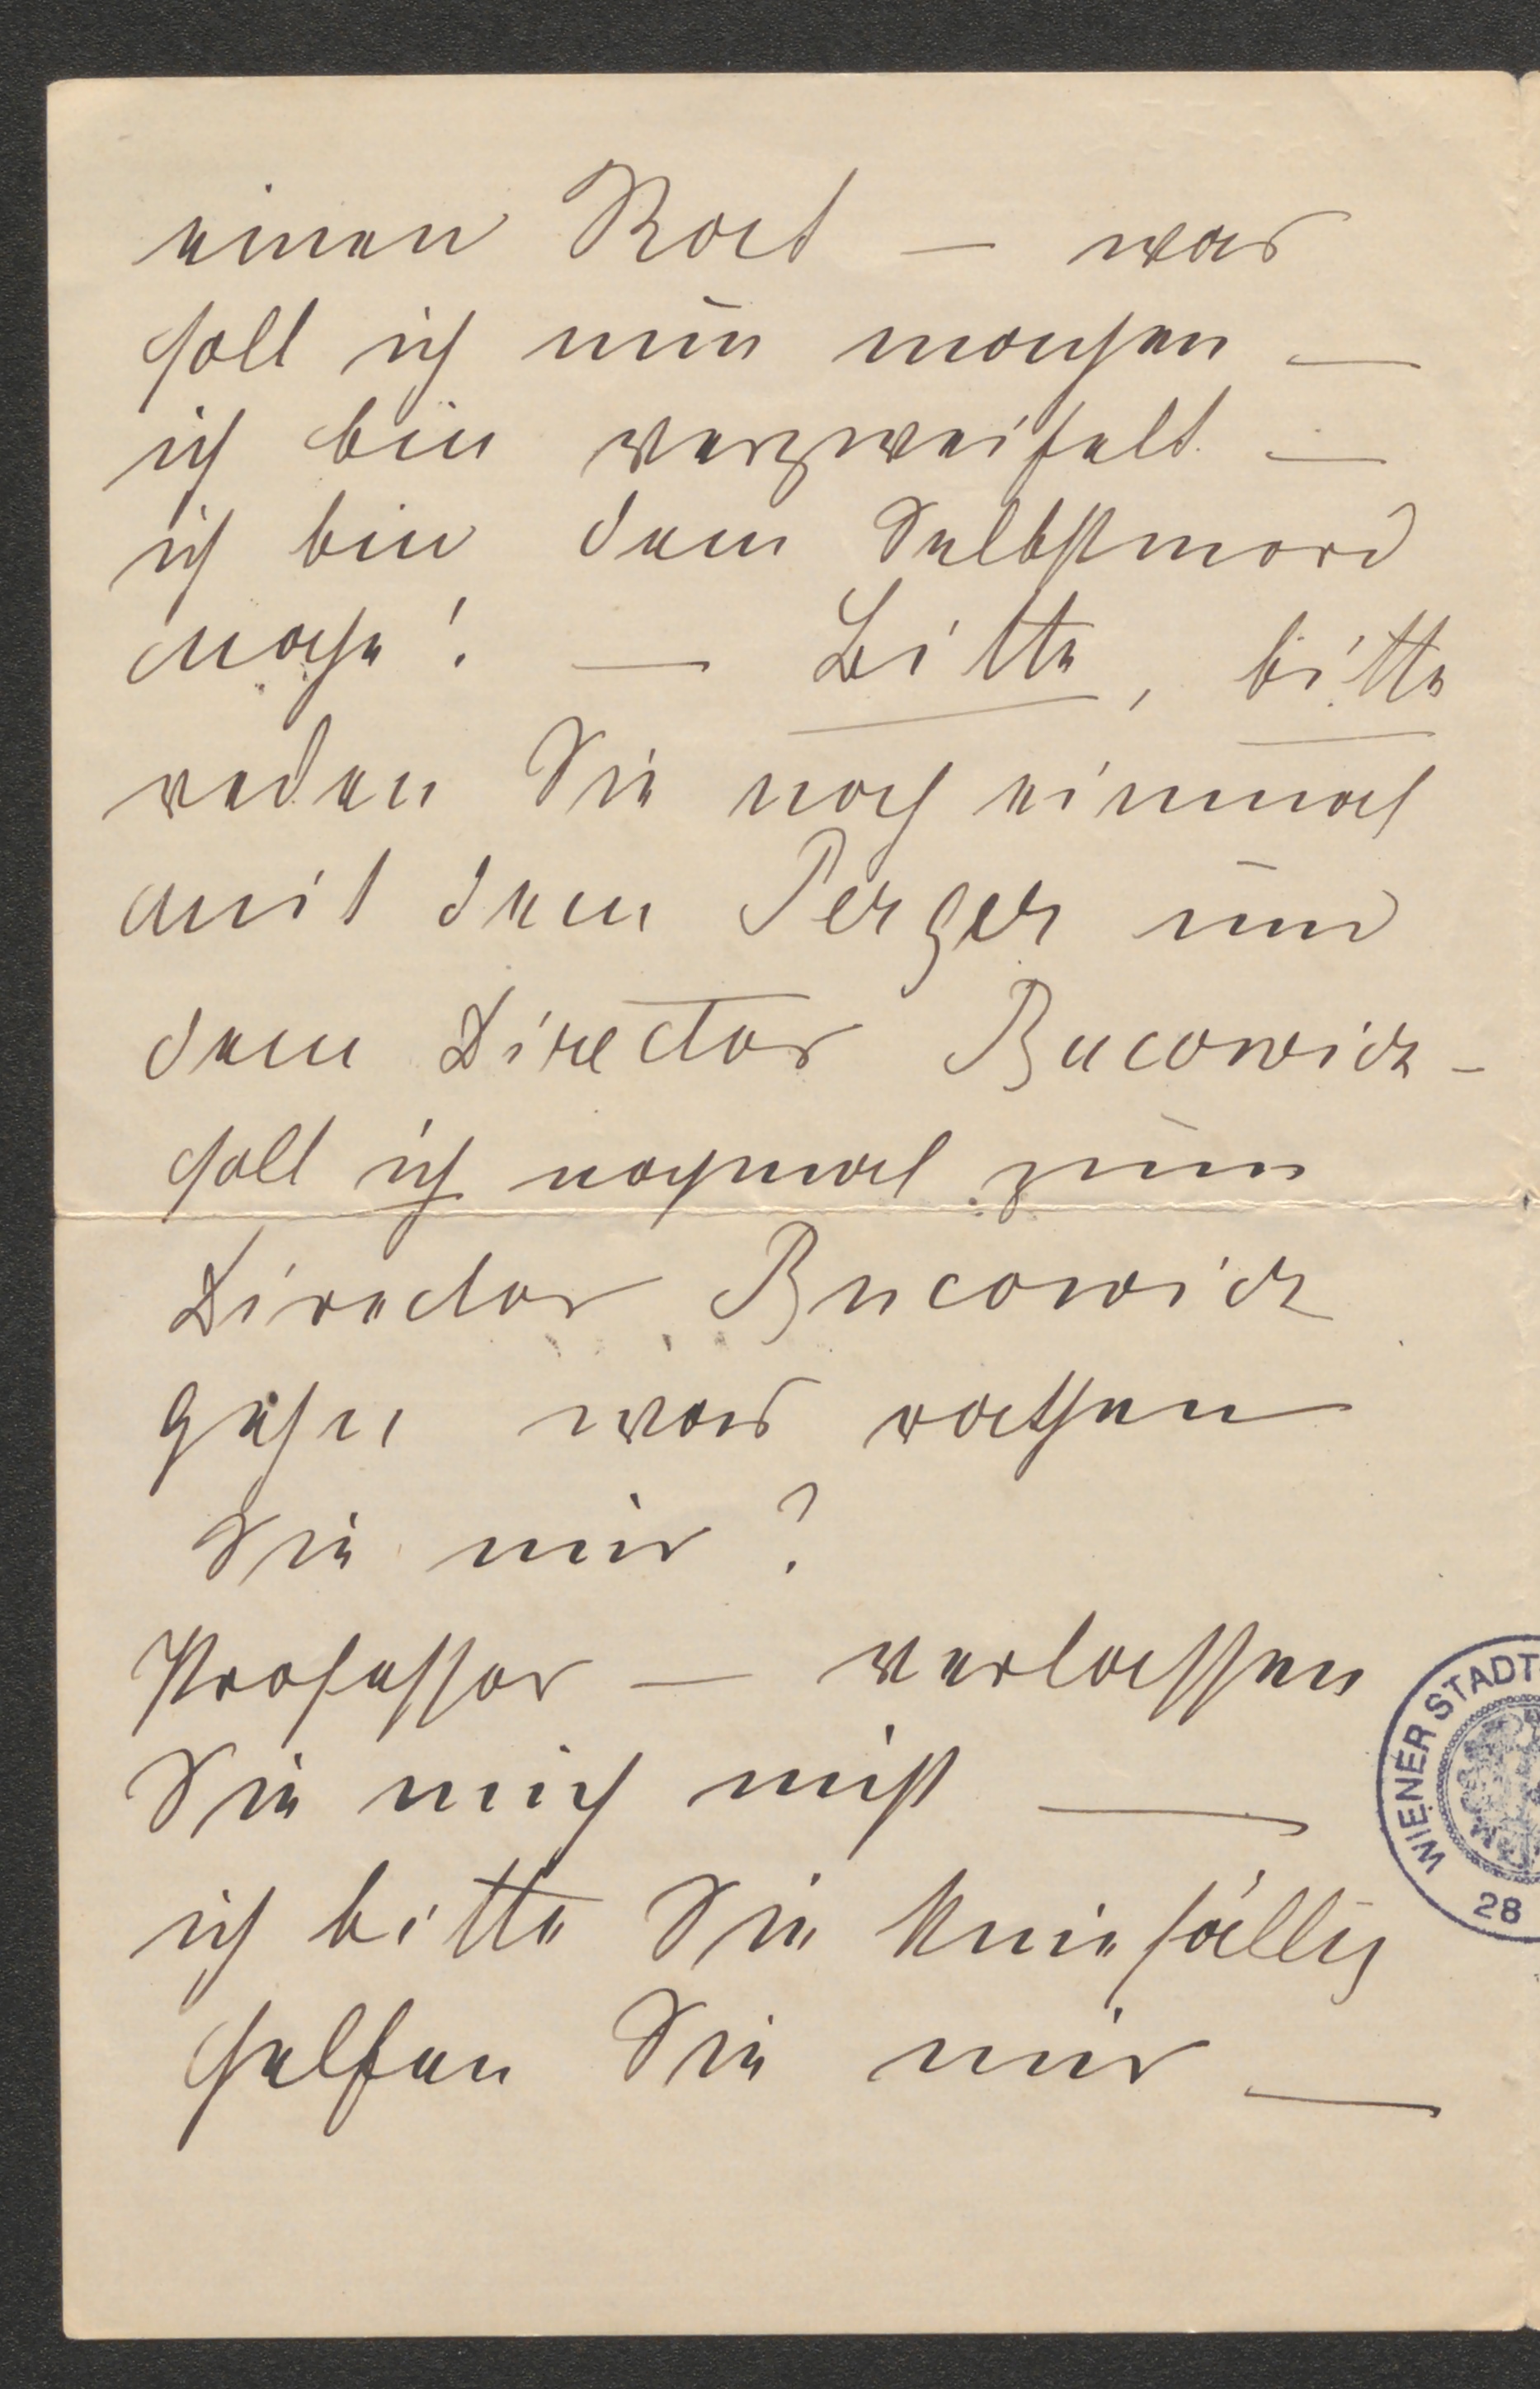 einen Rat — was
soll ich nun machen —
ich bin verzweifelt —
ich bin dem Selbstmord
nahe! — Bitte, bitte
reden Sie noch einmal
mit dem Perger und
dem Director Bucowich –
soll ich nochmal zum
Director Bucowich
gehen was rathen
Sie mir?
Professor — verlassen
Sie mich nicht —
ich bitte Sie kniefällig
helfen Sie mir —
WIENER STADT
28